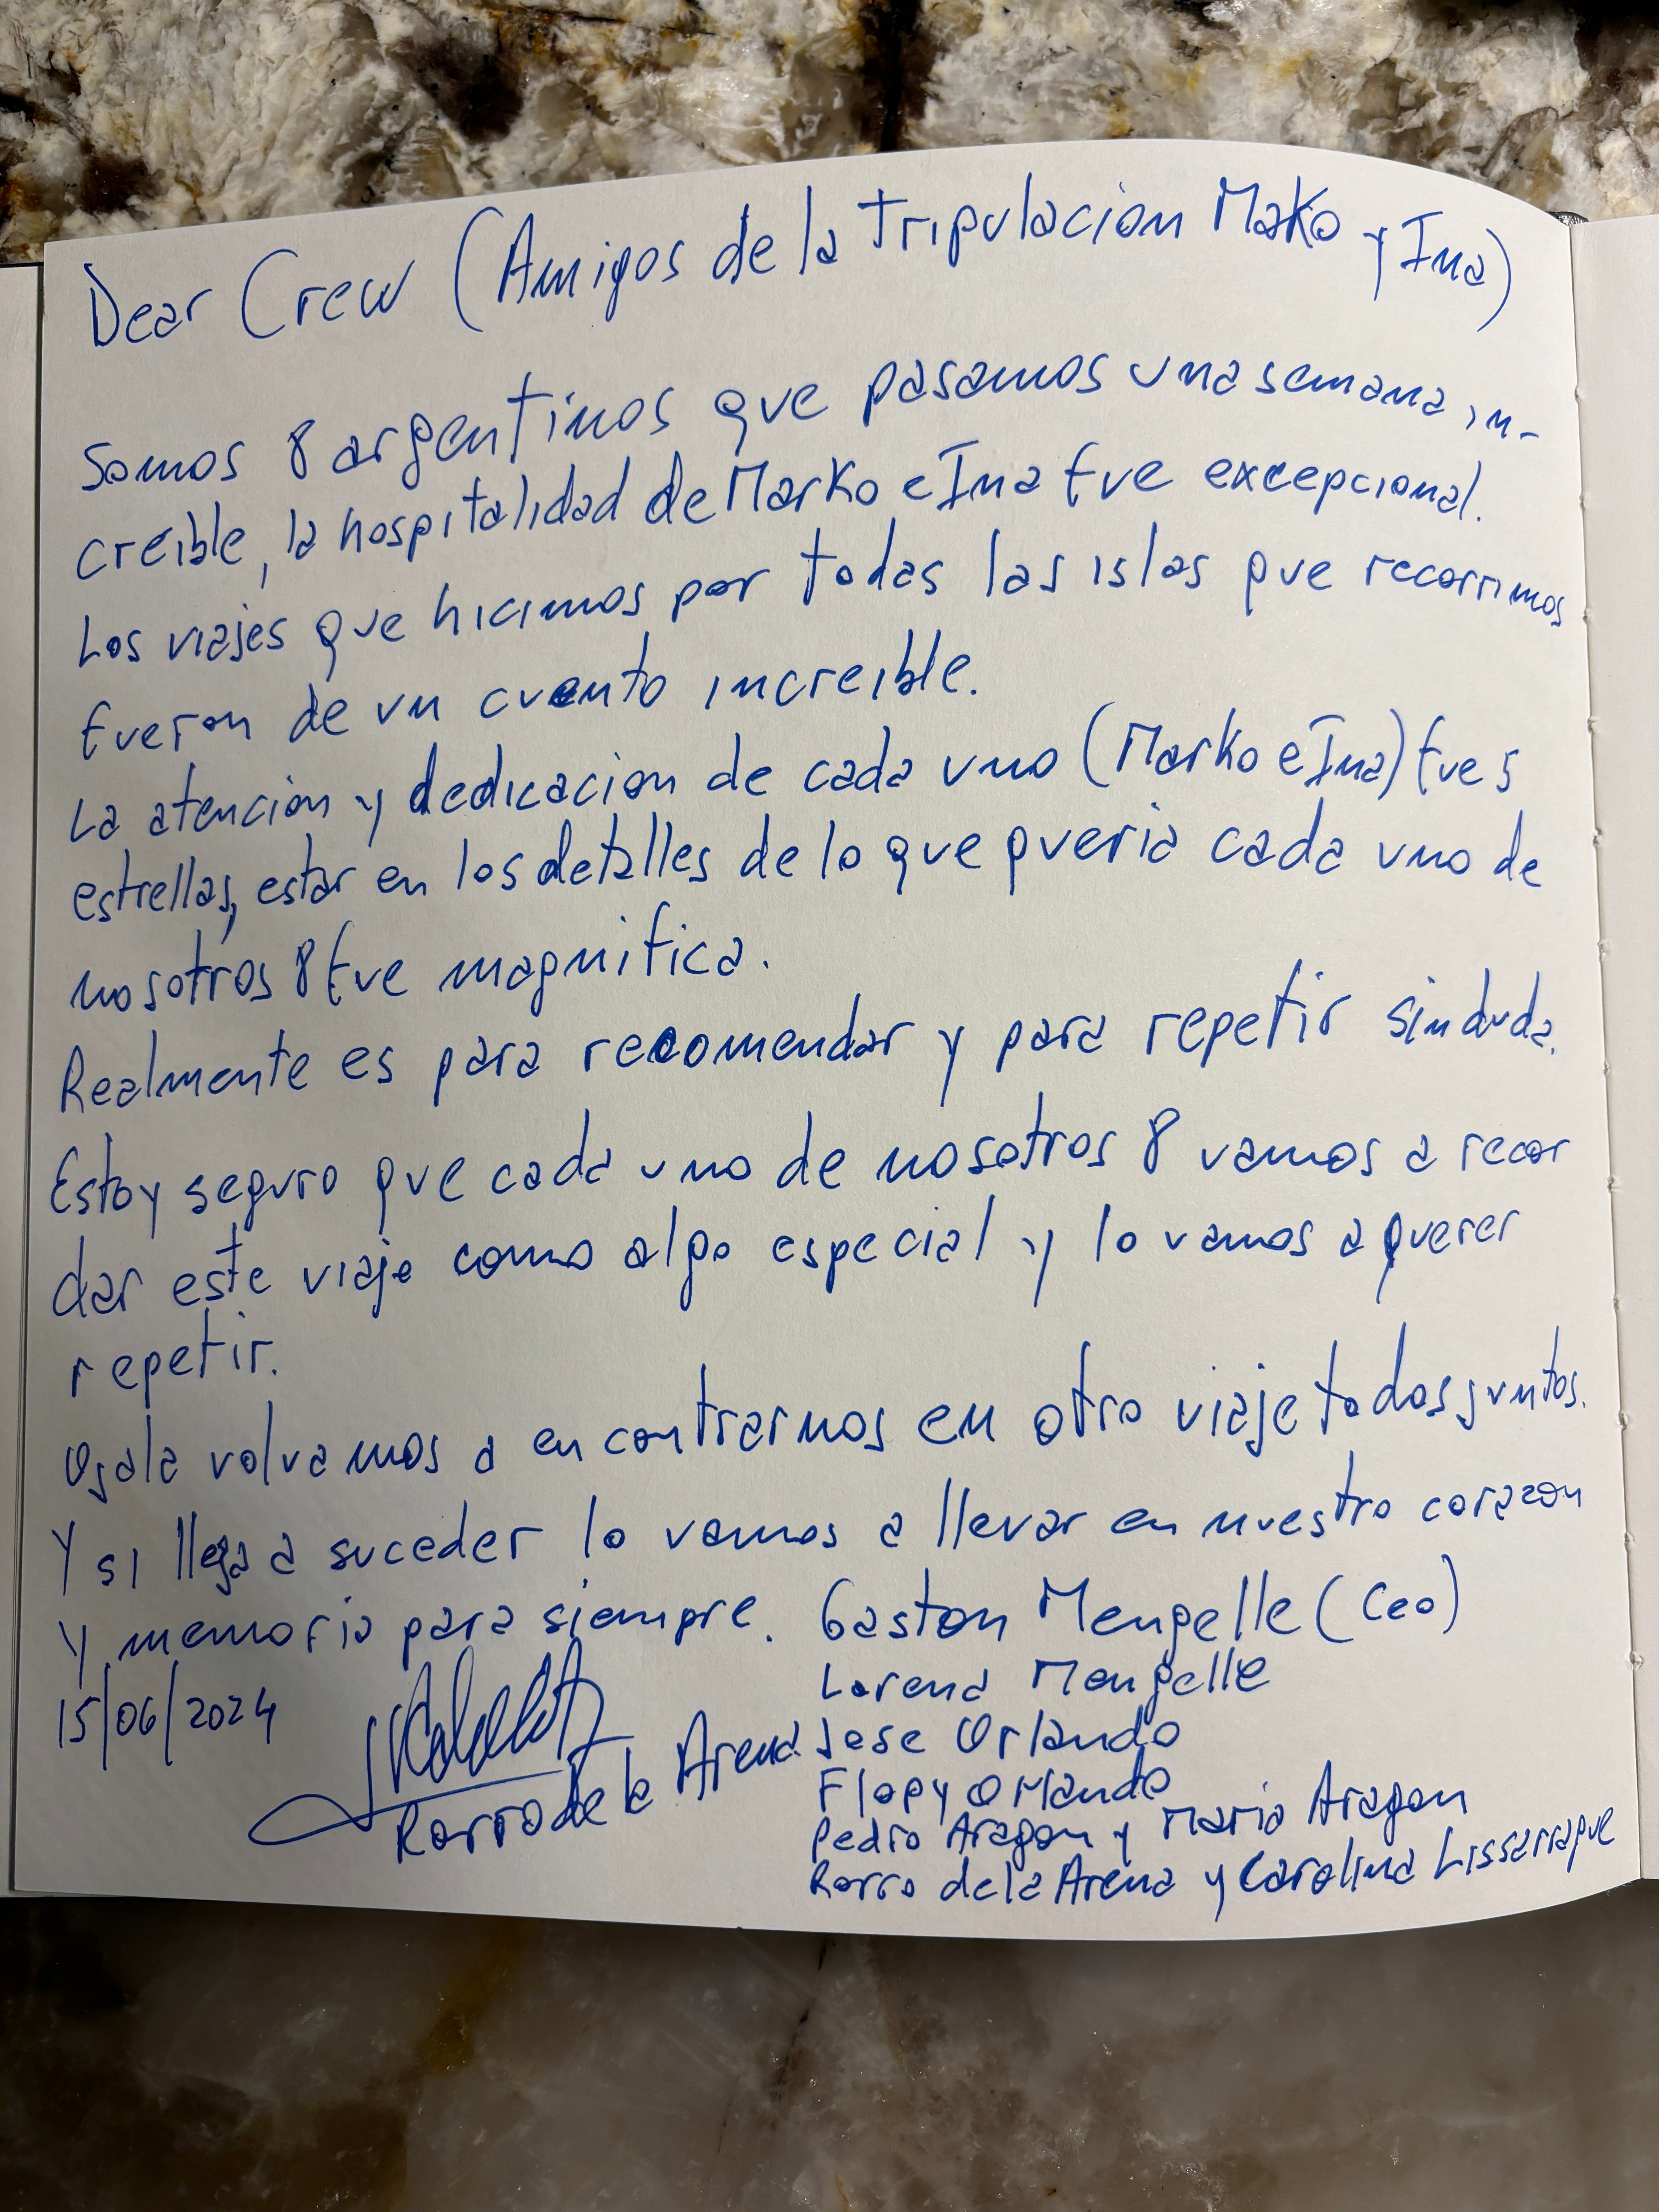 Dear Crew (Amigos de la Tripulacion Mako y Ina)
Somos 8 argentinos que pasamos una semana in-
creible, la hospitalidad de Marko e Ina fue excepcional.
Los viajes que hicimos por todas las islas que recorrimos
fueron de un cuento increible.
La atencion y dedicacion de cada uno (Marko e Ina) fue 5
estrellas, estar en los detalles de lo que queria cada uno de
nosotros 8 fue magnifica.
Realmente es para recomendar y para repetir sin duda.
Estoy seguro que cada uno de nosotros 8 vamos a recor
dar este viaje como algo especial y lo vamos a querer
repetir.
Ojala volvamos a encontrarnos en otro viaje todos juntos.
Y si llega a suceder lo vamos a llevar en nuestro corazon
y memoria para siempre. Gaston Mengelle (Ceo)
Lorena Mengelle
15/06/2024
Rorro de la Arena
Jose Orlando
Flopy Orlando
Pedro Aragon y Maria Aragon
Rorro de la Arena y Carolina Lissarrague